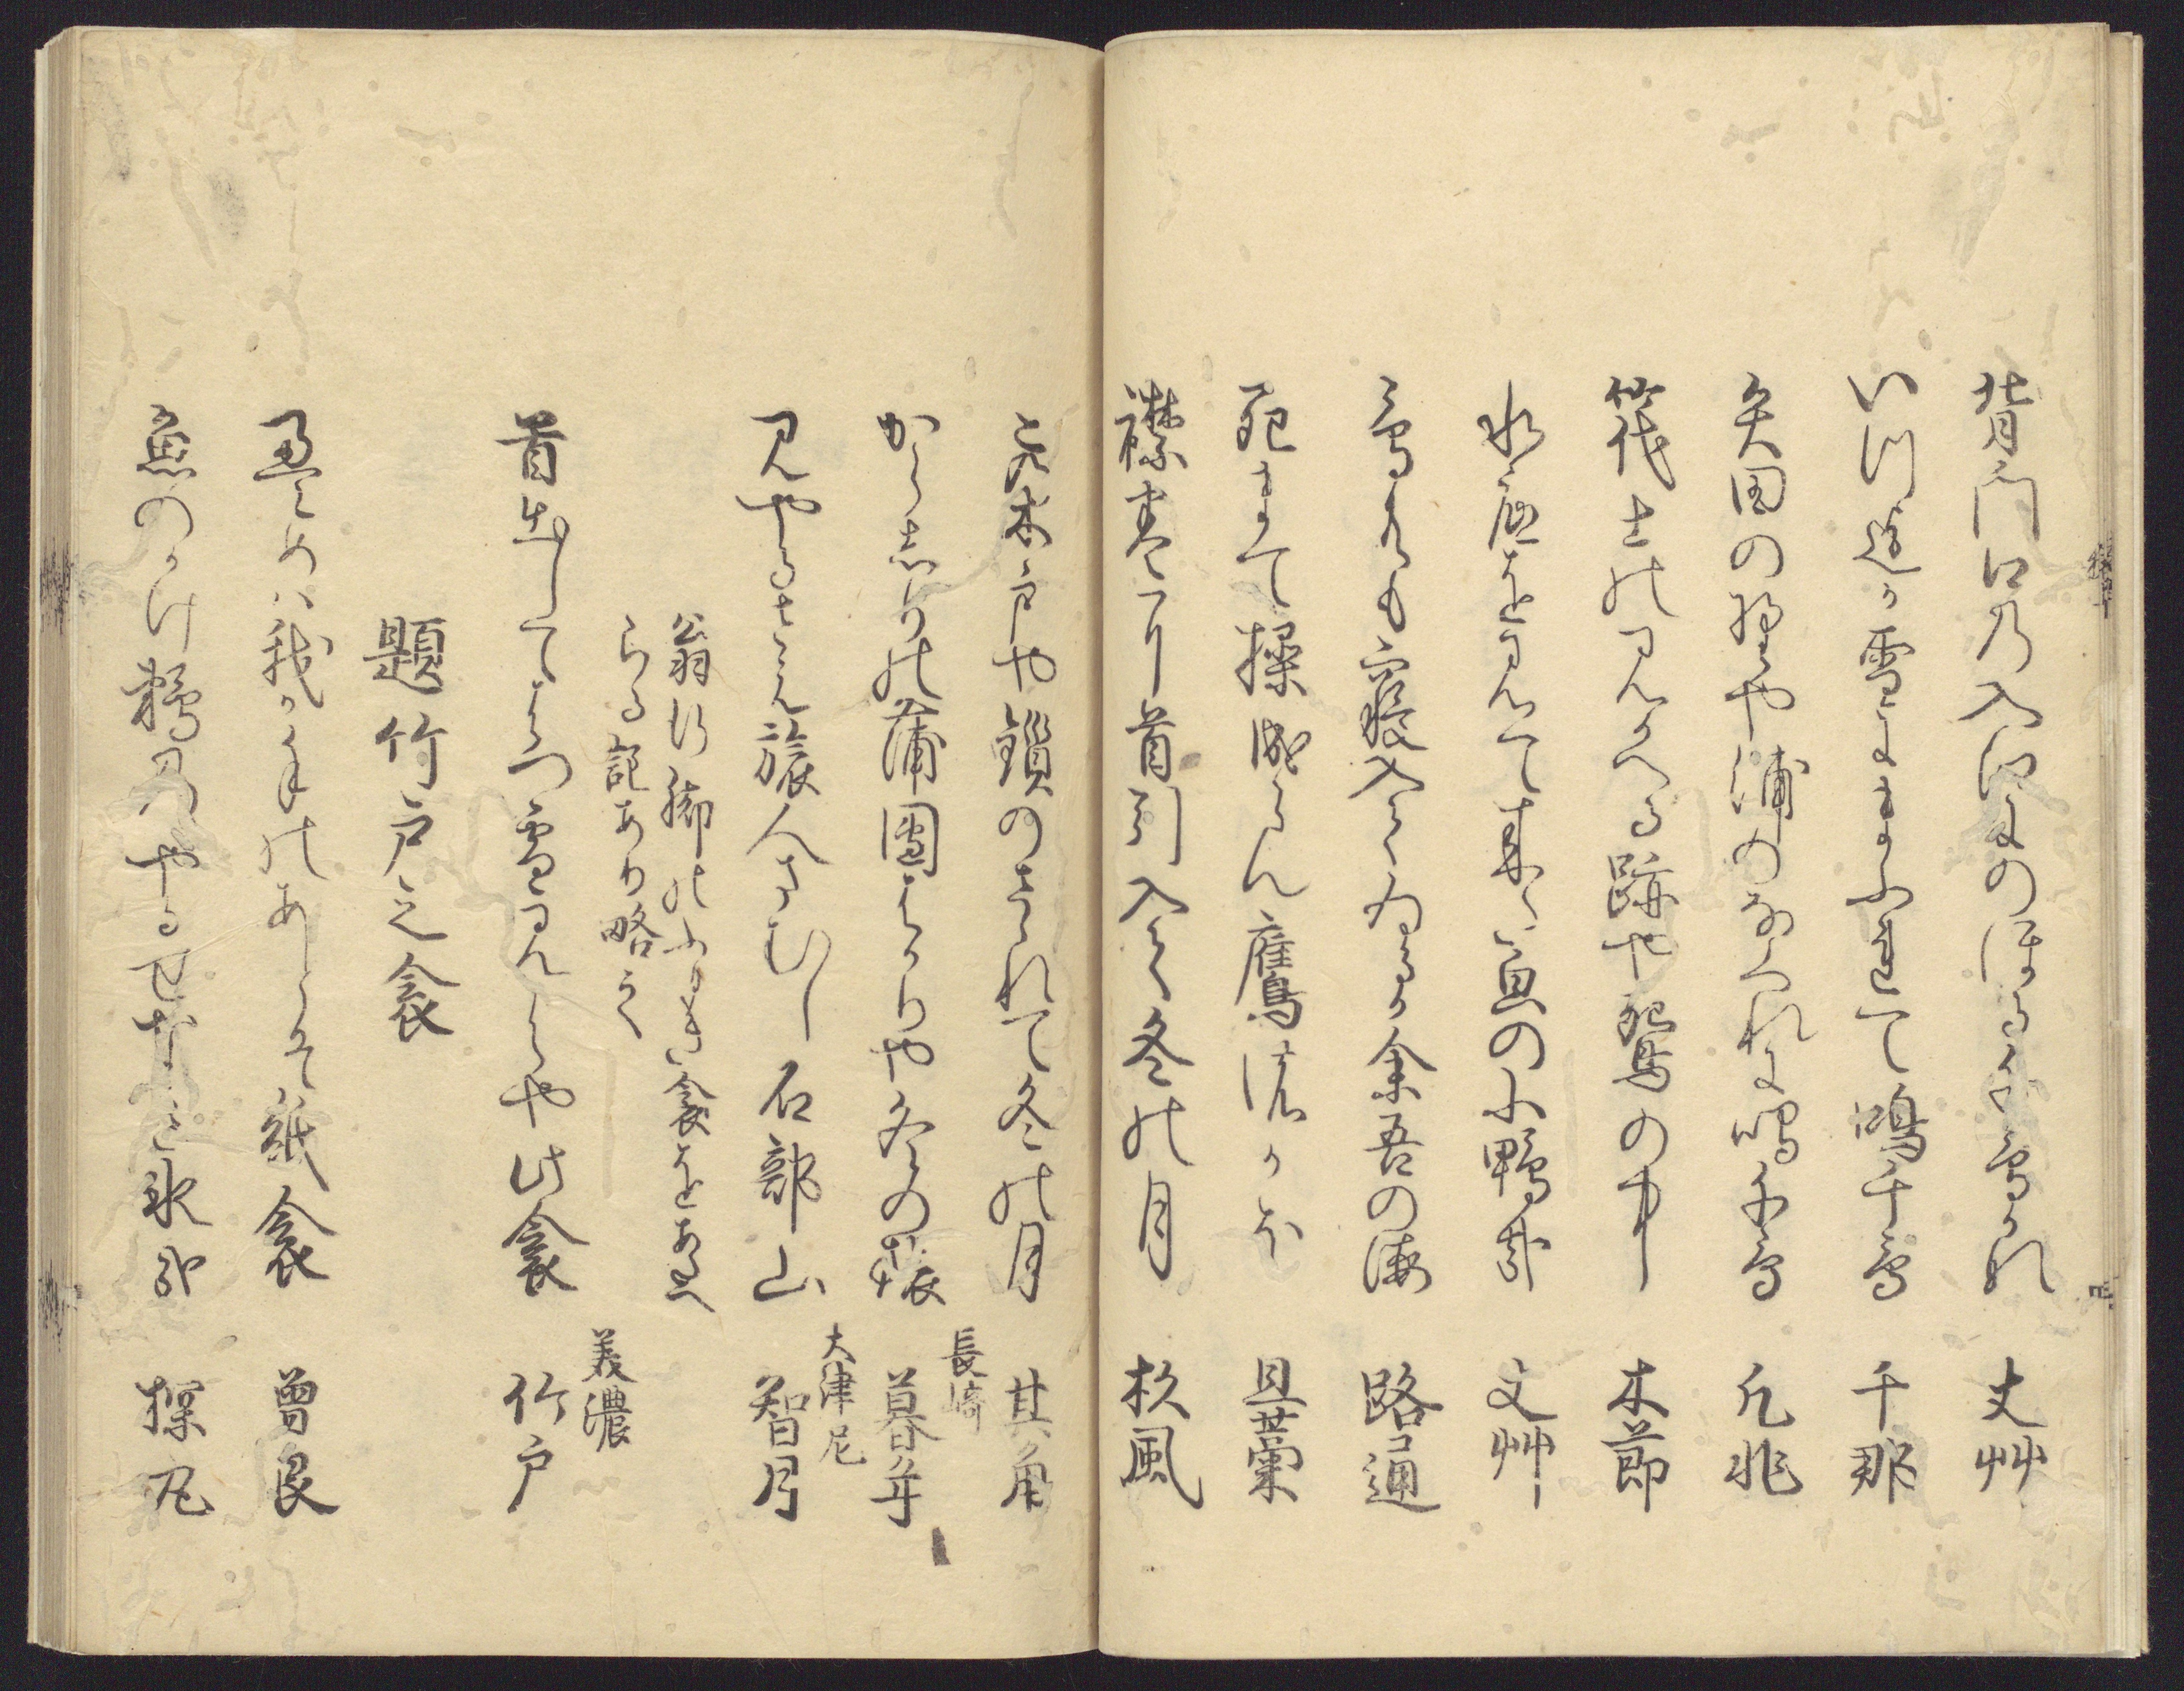 背門口の入江にのほる千鳥かな 丈艸
いつ迄か雪にまふれて鳴千鳥 千那
矢田の野や浦のなくれに鳴千鳥 凡兆
筏士の見かへる跡や鴛の中 木節
水底を見て来た㒵の小鴨哉 丈艸
鳥共も寝入てゐるか余吾の海 路通
死まて操成らん鷹のかほ 旦藁
襟巻に首引入て冬の月 杉風
此木戸や鎖のさゝれて冬の月 其角
からしりの蒲團はかりや冬の旅 長崎 暮年
見やるさえ旅人さむし石部山 大津尼 智月
翁行脚のふるき衾をあたへ
らる記あり略之
首出してはつ雪見はや此衾 美濃 竹戸
題竹戸之衾
畳めは我か手のあとそ紙衾 曽良
魚のかけ鵜のやるせなき氷哉 探丸